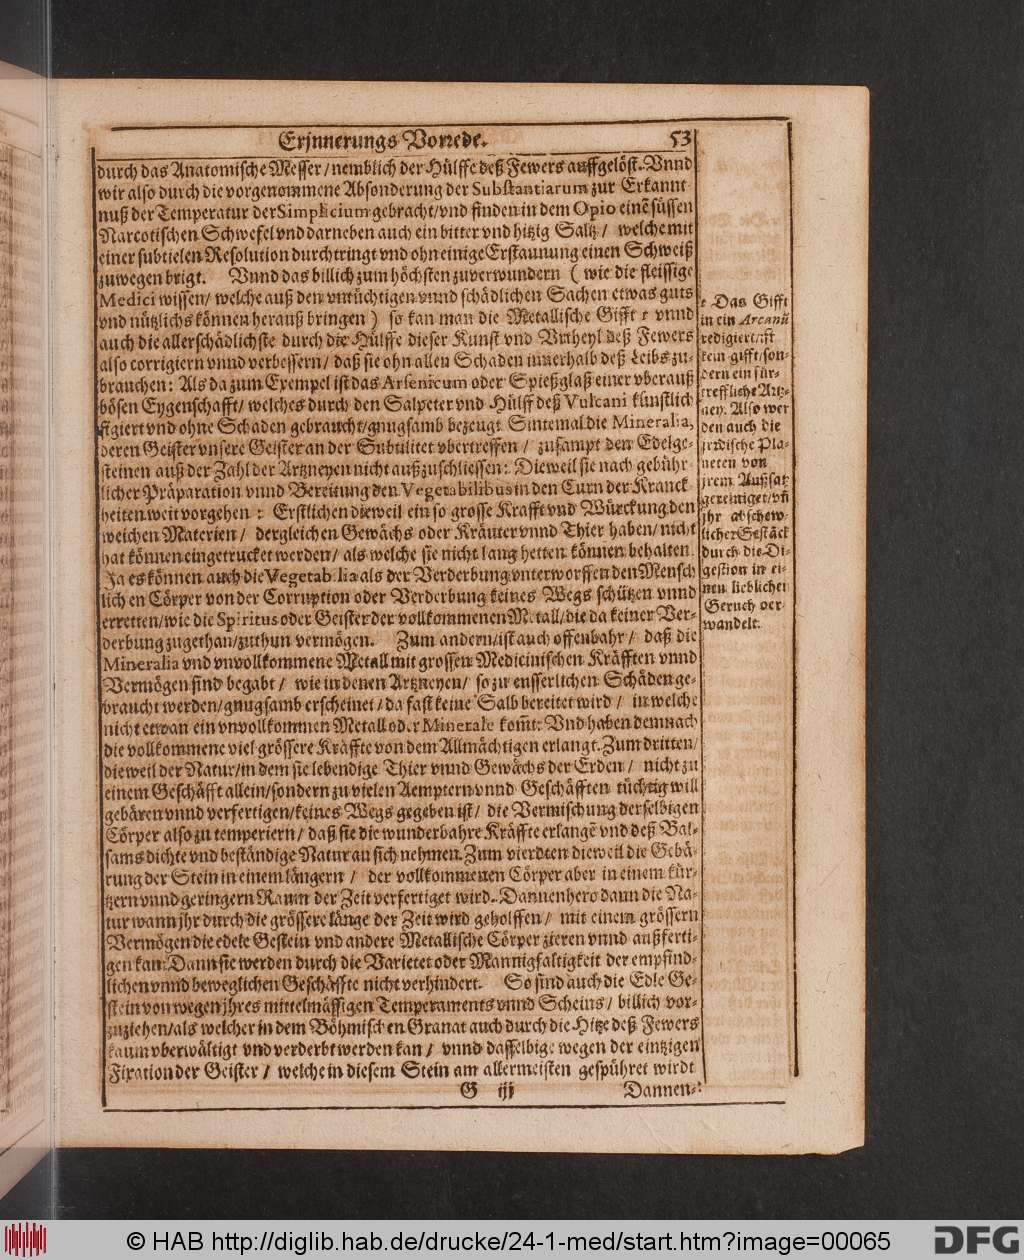 Erjnnerungs Vorrede. 53
durch das Anatomische Messer/nemblich der Hülffe deß Fewers auffgelöst. Vnnd
wir also durch die vorgenommene Absonderung der Substantiarum zur Erkannt
nuß der Temperatur der Simplicium gebracht/vnd finden in dem Opio einẽ süssen
Narcotischen Schwefel vnd darneben auch ein bitter vnd hitzig Saltz/ welche mit
einer subtielen Resolution durchtringt vnd ohn einige Erstaunung einen Schweiß
zuwegen brigt. Vnnd das billich zum höchsten zuverwundern (wie die fleissige
Medici wissen/welche auß den vntüchtigen vnnd schädlichen Sachen etwas guts
vnd nützlichs können herauß bringen) so kan man die Metallische Gifft e vnnd
auch die allerschädlichste durch die Hülffe dieser Kunst vnd Vrtheyl deß Fewers
also corrigiern vnnd verbessern/daß sie ohn allen Schaden innerhalb deß Leibs zu-
brauchen: Als da zum Exempel ist das Arsenicum oder Spießglaß einer vberauß
bösen Eygenschafft/welches durch den Salpeter vnd Hülff deß Vulcani künstlich
figiert vnd ohne Schaden gebraucht/gnugsamb bezeugt Sintemal die Mineralia,
deren Geister vnsere Geister an der Subtilitet vbertreffen/ zusampt den Edelge-
steinen auß der Zahl der Artzneyen nicht außzuschliessen: Dieweil sie nach gebühr-
licher Präparation vnnd Bereitung den Vegetabilibus in den Curn der Kranck
heiten weit vorgehen: Erstlichen dieweil ein so grosse Krafft vnd Würckung den
weichen Materien/ dergleichen Gewächs oder Kräuter vnnd Thier haben/nicht
hat können eingetrucket werden/als welche sie nicht lang hetten können behalten.
Ja es können auch die Vegetabilia als der Verderbung vnterworffen den Mensch
lichen Cörper von der Corruption oder Verderbung keines Wegs schützen vnnd
erretten/wie die Spiritus oder Geister der vollkommenen Metall/die da keiner Ver-
derbung zugethan/zuthun vermögen. Zum andern/ist auch offenbahr/ daß die
Mineralia vnd vnvollkommene Metall mit grossen Medicinischen Kräfften vnnd
Vermögen sind begabt/ wie in denen Artzneyen/ so zu eusserlichen Schäden ge-
braucht werden/gnugsamb erscheinet/da fast keine Salb bereitet wird/ in welche
nicht etwan ein vnvollkommen Metall oder Minerale kom̃t: Vnd haben demnach
die vollkommene viel grössere Kräffte von dem Allmächtigen erlangt. Zum dritten/
dieweil der Natur/in dem sie lebendige Thier vnnd Gewächs der Erden/ nicht zu
einem Geschäfft allein/sondern zu vielen Aemptern vnnd Geschäfften tüchtig will
gebären vnnd verfertigen/keines Wegs gegeben ist/ die Vermischung derselbigen
Cörper also zu temperiern/daß sie die wunderbahre Kräffte erlangẽ vnd deß Bal-
sams dichte vnd beständige Natur an sich nehmen. Zum vierdten dieweil die Gebä-
rung der Stein in einem längern/ der vollkommenen Cörper aber in einem kür-
tzern vnnd geringern Raum der Zeit verfertiget wird. Dannenhero dann die Na-
tur wann jhr durch die grössere länge der Zeit wird geholffen/ mit einem grössern
Vermögen die edele Gestein vnd andere Metallische Cörper zieren vnnd außferti-
gen kan: Dann sie werden durch die Varietet oder Mannigfaltigkeit der empfind-
lichen vnnd beweglichen Geschäffte nicht verhindert. So sind auch die Edle Ge-
stein von wegen jhres mittelmässigen Temperaments vnnd Scheins/ billich vor-
zuziehen/als welcher in dem Böhmischen Granat auch durch die Hitze deß Fewers
kaum vberwältigt vnd verderbt werden kan/ vnnd dasselbige wegen der eintzigen
Fixation der Geister/ welche in diesem Stein am allermeisten gespühret wirdt
G iij Dannen-
e Das Gifft
in ein Arcanũ
redigiert/ist
kein gifft/son-
dern ein für-
treffliche Artz-
ney. Also wer
den auch die
jrrdische Pla-
neten von
jrem Außsatz
gereiniget/vñ
jhr abschew-
licher Gestäck
durch die Di-
gestion in ei-
nen lieblichen
Geruch ver
wandelt.
© HAB http://diglib.hab.de/drucke/24-1-med/start.htm?image=00065
DFG